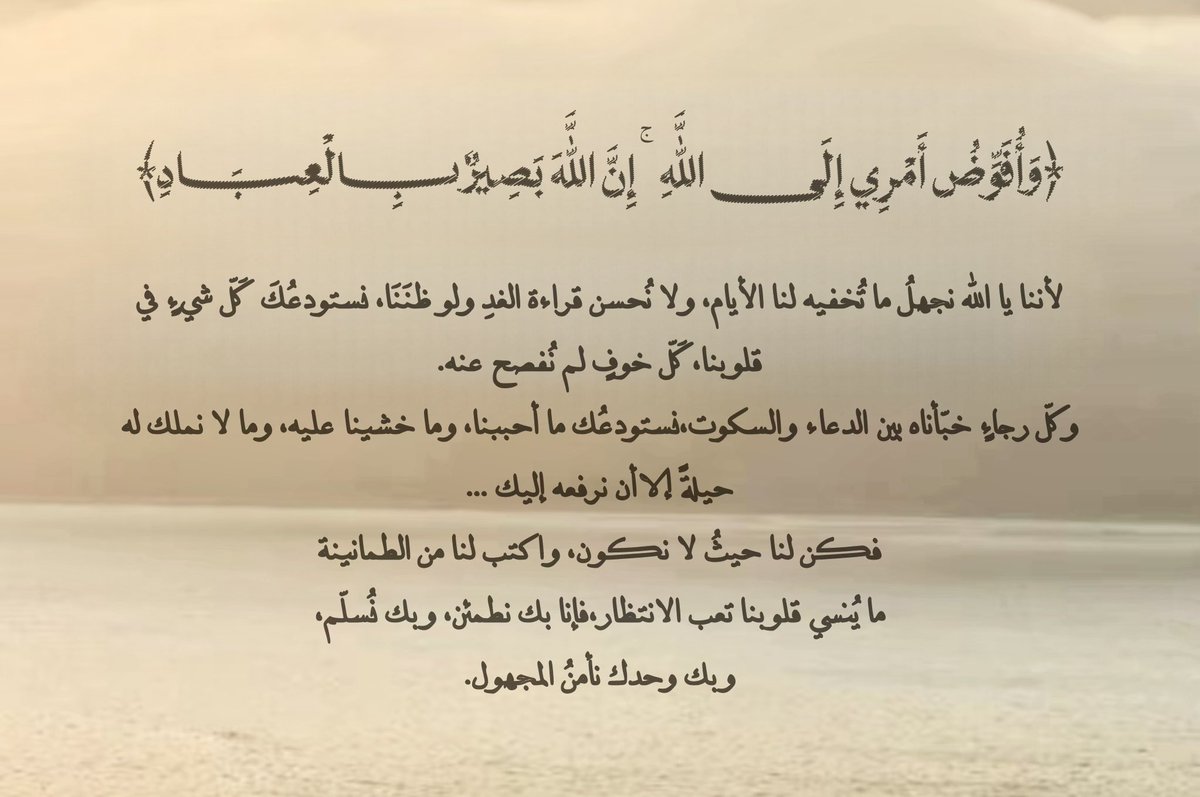 ﴿وَأُفَوِّضُ أَمْرِي إِلَى اللَّهِ ۚ إِنَّ اللَّهَ بَصِيرٌ بِالْعِبَادِ﴾
لأننا يا الله نجهلُ ما تُخفيه لنا الأيام، ولا نُحسن قراءة الغدِ ولو ظنَنَا، نستودعُكَ كَلّ شيءٍ في
قلوبنا،كَلّ خوفٍ لم نُفصح عنه.
وكلّ رجاءٍ خبّأناه بين الدعاء والسكوت،نستودعُك ما أحببنا، وما خشينا عليه، وما لا نملك له
حيلةً إلا أن نرفعه إليك ...
فكن لنا حيثُ لا نكون، واكتب لنا من الطمانينة
ما يُنسي قلوبنا تعب الانتظار،فإنا بك نطمئن، وبك نُسلّم،
وبك وحدك نأمنُ المجهول.